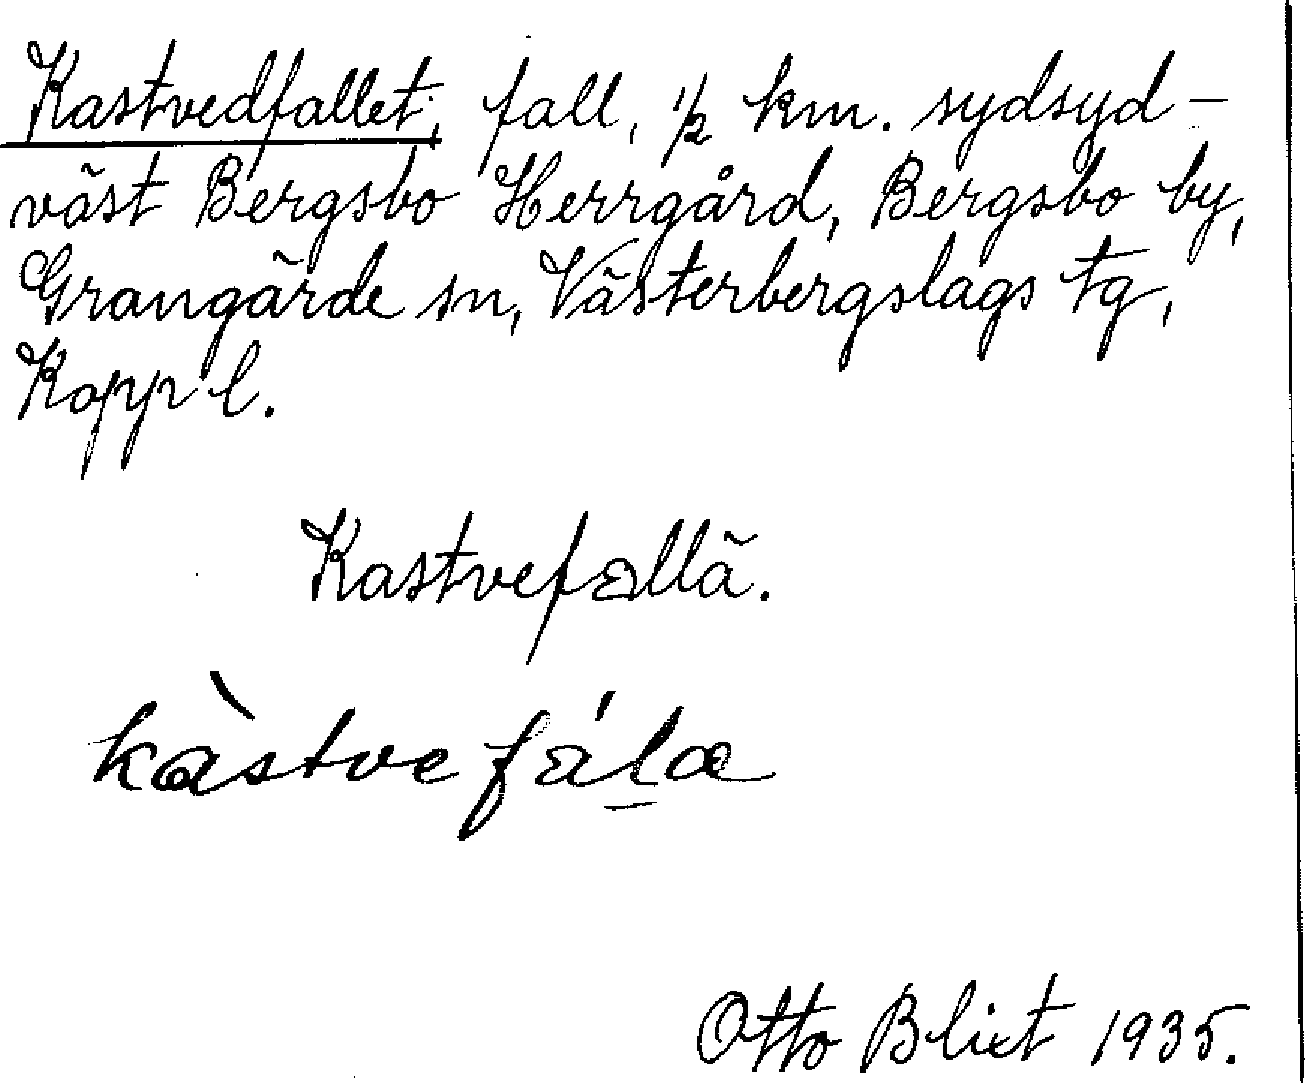 Kastvedfallet, fall, 1/2 km. sydsyd-
väst Bergsbo Herrgård, Bergsbo by,
Grangärde sn, Västerbergslags tg,
Kopp l.
Kastvefallä.
kàstvefálæ
Otto Blixt 1935.